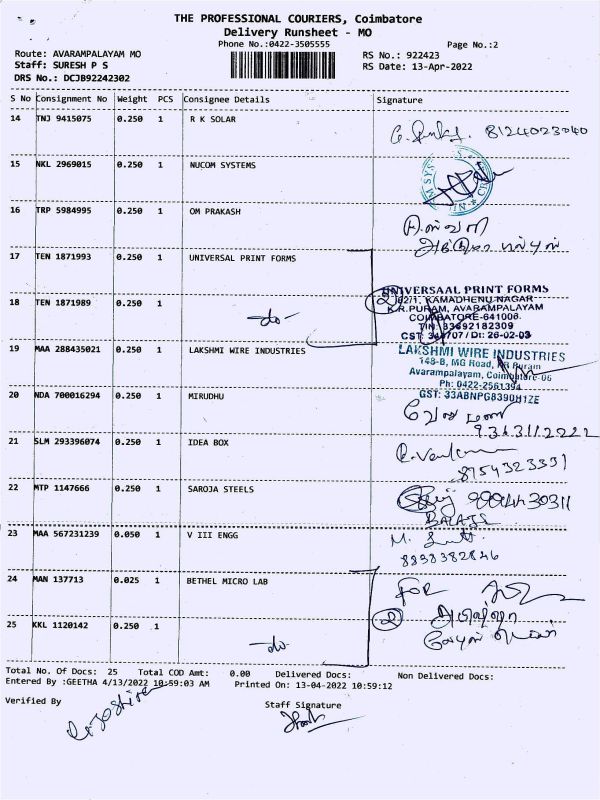 THE PROFESSIONAL COURIERS, Coimbatore
Delivery Runsheet - MO
Phone No.:0422-3505555
Page No.:2
Route: AVARAMPALAYAM MO
Staff: SURESH P S
DRS No.: DCJB92242302
RS No.: 922423
RS Date: 13-Apr-2022
S No Consignment No Weight PCS Consignee Details Signature
14 TNJ 9415075 0.250 1 R K SOLAR 8124023040
15 NKL 2969015 0.250 1 NUCOM SYSTEMS
16 TRP 5984995 0.250 1 OM PRAKASH
17 TEN 1871993 0.250 1 UNIVERSAL PRINT FORMS
18 TEN 1871989 0.250 1 -do-
2
UNIVERSAAL PRINT FORMS
62/1, KAMADHENU NAGAR
K.R.PURAM, AVARAMPALAYAM
COIMBATORE-641006.
TIN: 33692182309
CST: /Dt: 26-02-03
19 MAA 288435021 0.250 1 LAKSHMI WIRE INDUSTRIES
LAKSHMI WIRE INDUSTRIES
148-B, MG Road, KR Puram
Avarampalayam, Coimbatore-06
Ph: 0422-2561394
GST: 33ABNPG8390H1ZE
20 NDA 700016294 0.250 1 MIRUDHU
9363112222
21 SLM 293396074 0.250 1 IDEA BOX
8754323331
22 MTP 1147666 0.250 1 SAROJA STEELS
BALAJI
23 MAA 567231239 0.050 1 V III ENGG M.
8838382846
24 MAN 137713 0.025 1 BETHEL MICRO LAB FOR
2
25 KKL 1120142 0.250 1 -do-
Total No. Of Docs: 25 Total COD Amt: 0.00 Delivered Docs: Non Delivered Docs:
Entered By :GEETHA 4/13/2022 10:59:03 AM Printed On: 13-04-2022 10:59:12
Verified By Staff Signature